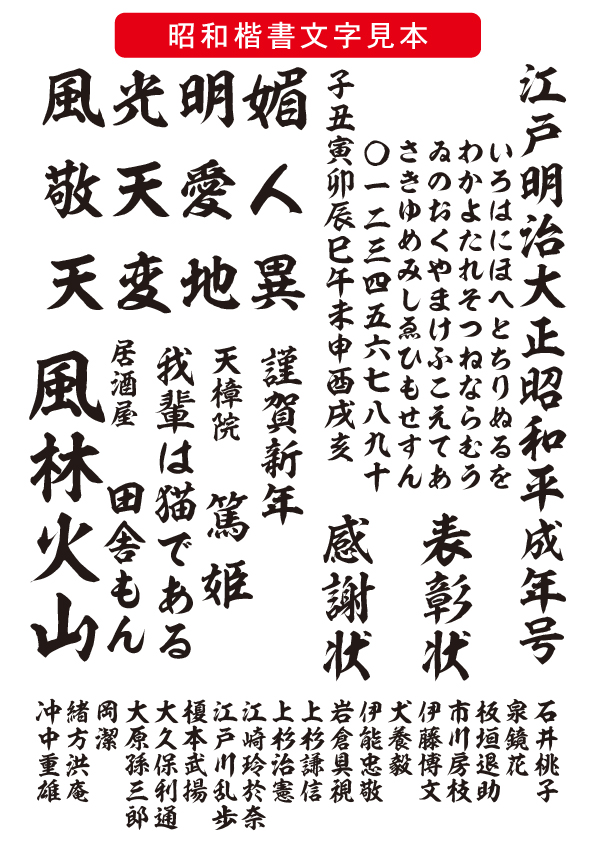 昭和楷書文字見本
江戸明治大正昭和平成年号
いろはにほへとちりぬるを
わかよたれそつねならむう
ゐのおくやまけふこえてあ
さきゆめみしゑひもせすん
〇一二三四五六七八九十
子丑寅卯辰巳午未申酉戌亥
表彰状
感謝状
媚人異
明愛地
光天変
風敬天
謹賀新年
天樟院
篤姫
我輩は猫である
居酒屋
田舎もん
風林火山
石井桃子
泉鏡花
板垣退助
市川房枝
伊藤博文
犬養毅
伊能忠敬
岩倉具視
上杉謙信
上杉治憲
江崎玲於奈
江戸川乱歩
榎本武揚
大久保利通
大原孫三郎
岡潔
緒方洪庵
冲中重雄